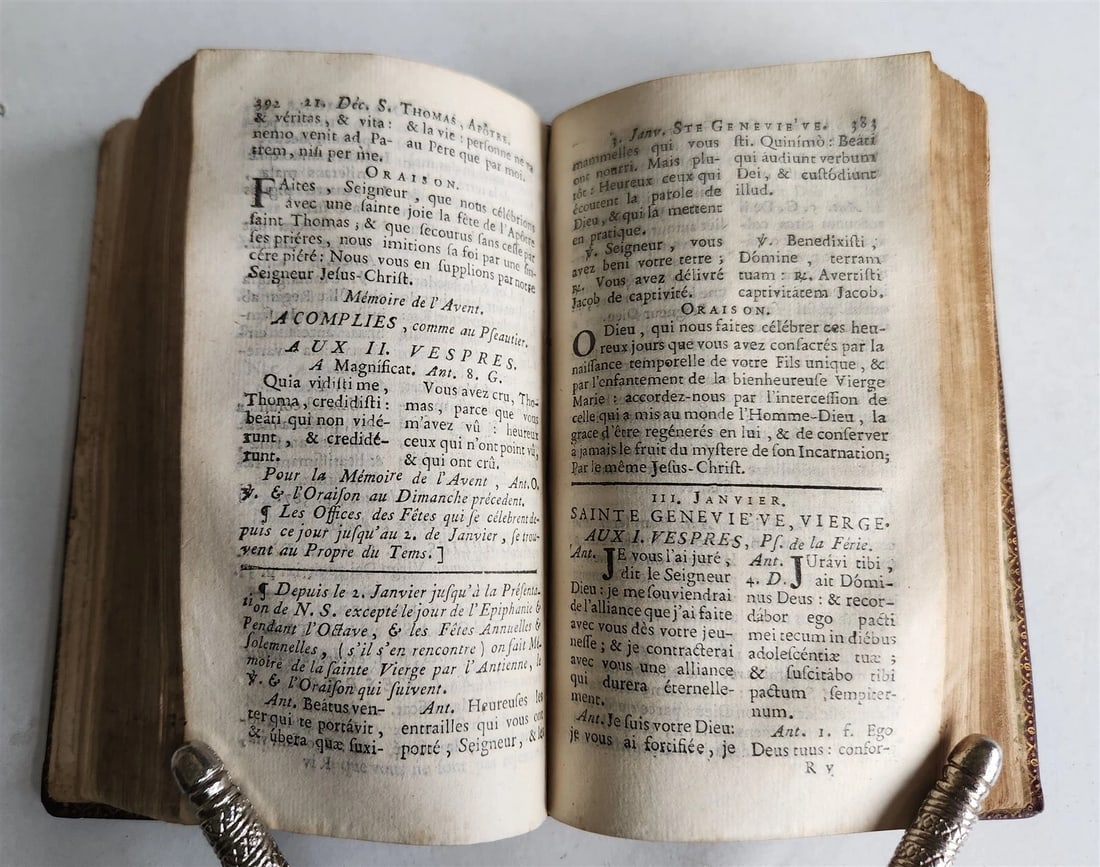 392 21. Déc. S. THOMAS, APÔTRE.
& véritas, & vita :
nemo venit ad Pa-
trem, nisi per me.
& la vie : personne ne va
au Pere que par moi.
ORAISON.
FAites, Seigneur, que nous célébrions
avec une sainte joie la fête de l'Apôtre
saint Thomas ; & que secourus sans cesse par
ses priéres, nous imitions sa foi par une sin-
cére piété : Nous vous en supplions par notre
Seigneur Jesus-Christ.
Mémoire de l'Avent.
A COMPLIES, comme au Pseautier.
AUX II. VESPRES.
A Magníficat. Ant. 8. G.
Quia vidisti me,
Thoma, credidisti :
beáti qui non vidé-
runt, & credidé-
runt.
Vous avez cru, Tho-
mas, parce que vous
m'avez vû : heureux
ceux qui n'ont point vû,
& qui ont crû.
Pour la Mémoire de l'Avent, Ant. O.
℣. & l'Oraison au Dimanche précedent.
¶ Les Offices des Fêtes qui se célebrent de-
puis ce jour jusqu'au 2. de Janvier, se trou-
vent au Propre du Tems.]
¶ Depuis le 2. Janvier jusqu'à la Présenta-
tion de N. S. excepté le jour de l'Epiphanie &
Pendant l'Octave, & les Fêtes Annuelles &
Solemnelles, (s'il s'en rencontre) on fait Mé-
moire de la sainte Vierge par l'Antienne, le
℣. & l'Oraison qui suivent.
Ant. Beátus ven-
ter qui te portávit,
& úbera quæ suxi-
Ant. Heureuses les
entrailles qui vous ont
porté, Seigneur, & les
3. Janv. STE GENEVIE'VE. 383
mammelles qui vous
ont nourri. Mais plu-
tôt : Heureux ceux qui
écoutent la parole de
Dieu, & qui la mettent
en pratique.
℣. Seigneur, vous
avez beni votre terre ;
℟. Vous avez délivré
Jacob de captivité.
sti. Quinimò : Beáti
qui áudiunt verbum
Dei, & custódiunt
illud.
℣. Benedixisti,
Dómine, terram
tuam : ℟. Avertisti
captivitátem Jacob.
ORAISON.
O Dieu, qui nous faites célébrer ces heu-
reux jours que vous avez consacrés par la
naissance temporelle de votre Fils unique, &
par l'enfantement de la bienheureuse Vierge
Marie : accordez-nous par l'intercession de
celle qui a mis au monde l'Homme-Dieu, la
grace d'être regénerés en lui, & de conserver
a jamais le fruit du mystere de son Incarnation;
Par le même Jesus-Christ.
III. JANVIER.
SAINTE GENEVIE'VE, VIERGE.
AUX I. VESPRES, Ps. de la Férie.
Ant. JE vous l'ai juré,
dit le Seigneur
Dieu : je me souviendrai
de l'alliance que j'ai faite
avec vous dès votre jeu-
nesse ; & je contracterai
avec vous une alliance
qui durera éternelle-
ment.
Ant. Je suis votre Dieu:
je vous ai fortifiée, je
Ant. JUrávi tibi,
4. D. ait Dómi-
nus Deus : & recor-
dábor ego pacti
mei tecum in diébus
adolescéntiæ tuæ ;
& suscitábo tibi
pactum sempiter-
num.
Ant. 1. f. Ego
Deus tuus : confor-
R v